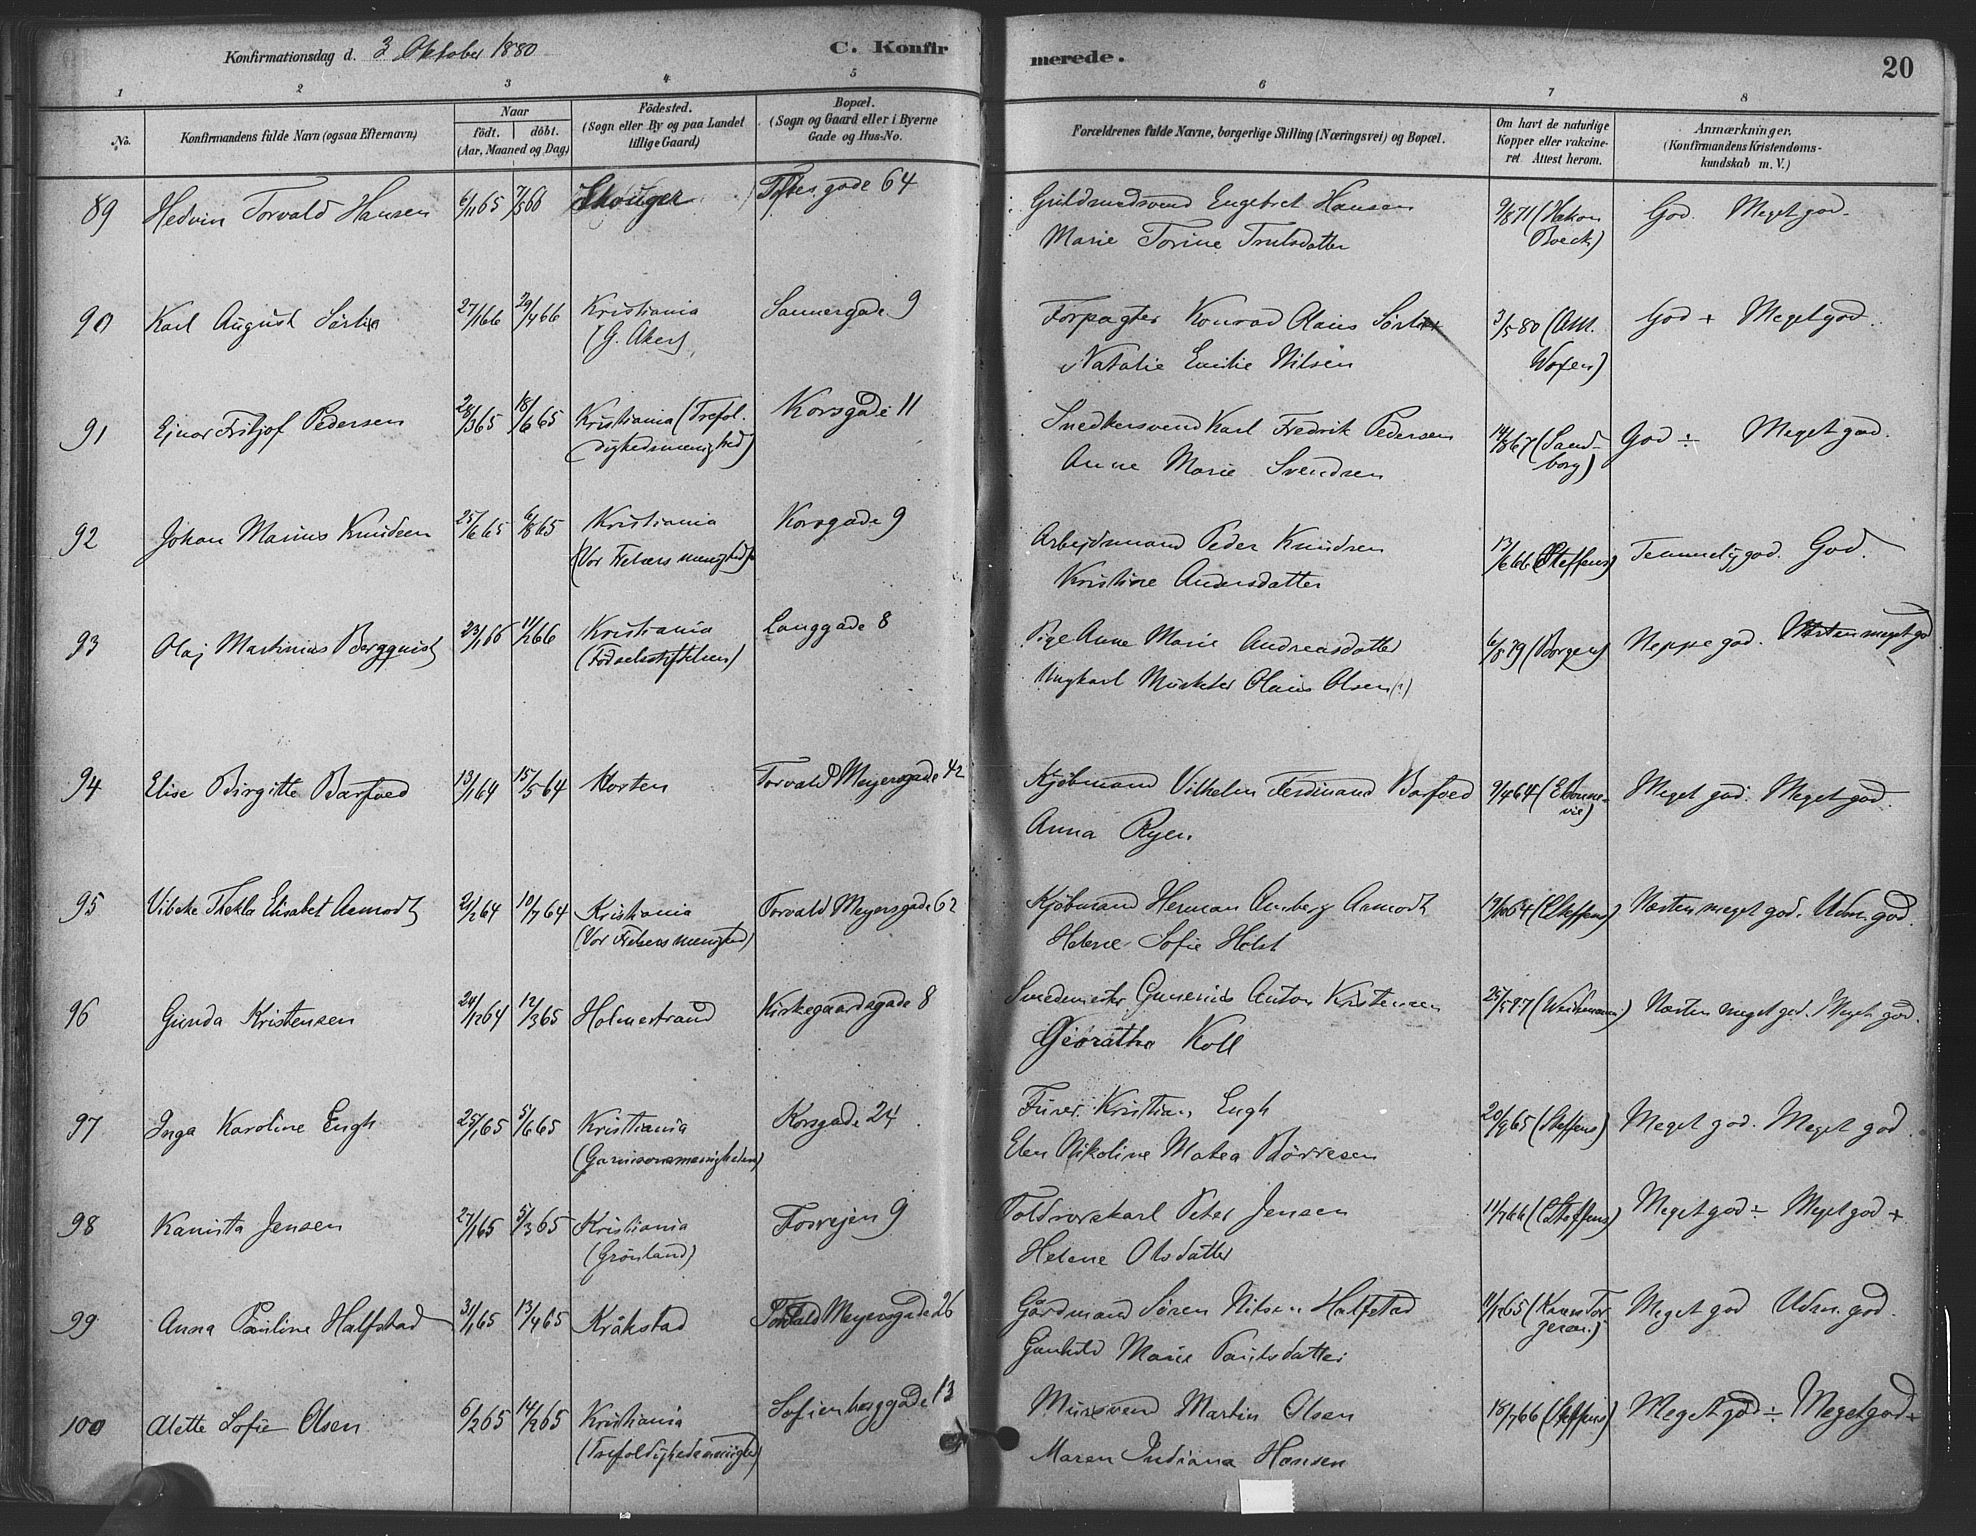 Konfirmationsdag d. 3 Oktober 1880
C. Konfirmerede.
20
1 2 3 4 5 6 7 8
No.
Konfirmandens fulde Navn (ogsaa Efternavn)
Naar
født. døbt.
(Aar, Maaned og Dag)
Fødested.
(Sogn eller By og paa Landet tillige Gaard)
Bopæl.
(Sogn og Gaard eller i Byerne Gade og Hus-No.
Forældrenes fulde Navne, borgerlige Stilling (Næringsvei) og Bopæl.
Om havt de naturlige Kopper eller vakcineret. Attest herom.
Anmærkninger.
(Konfirmandens Kristendomskundskab m. V.)
89 Hedvin Torvald Hansen 6/11 65 7/5 66 Skoüger Toftesgade 64 Guldsmedsvend Engebret Hansen 9/8 71 (Hakon God. Meget god.
Marie Torine Trulsdatter Boeck)
90 Karl August Sørlie 27/1 66 29/4 66 Kristiania Sannergade 9 Forpagter Konrad Olaus Sørlie 3/5 80 (AM. God + Meget god.
(G. Aker) Natalie Emilie Nilsen Woxen)
91 Ejnar Fritjof Pedersen 28/3 65 18/6 65 Kristiania (Trefol- Korsgade 11 Snedkersvend Karl Fredrik Pedersen 14/8 67 (Sand- God ÷ Meget god.
dighedsmenighed) Anne Marie Svendsen borg)
92 Johan Marius Knudsen 25/6 65 6/8 65 Kristiania Korsgade 9 Arbejdsmand Peder Knudsen 13/6 66 (Steffens) Temmelig god. God.
(Vor Frelsers menighed) Kristine Andersdatter
93 Olaj Martinius Bergquist 23/1 66 11/2 66 Kristiania Langgade 8 Pige Anne Marie Andreasdatter 6/8 79 (Borgen) Neppe god. Næsten meget god
(Fødselsstiftelsen) Ungkarl Musketer Olaus Olsen (?)
94 Elise Birgitte Barfoed 13/1 64 15/5 64 Horten Torvald Meyersgade 42 Kjøbmand Vilhelm Ferdinand Barfoed 9/4 64 (E Bonne- Meget god. Meget god.
Anna Ryen vie)
95 Vibeke Thekla Elisabet Aamodt 21/2 64 10/7 64 Kristiania Torvald Meyersgade 62 Kjøbmand Herman Amberg Aamodt (Steffens) Næsten meget god. Udm. god.
(Vor Frelsers menighed) Helene Sofie Holst
96 Gunda Kristensen 24/12 64 12/3 65 Holmestrand Kirkegaardsgade 8 Smedmester Gunerius Anton Kristensen Næsten meget god. Meget god.
Koll
97 Inga Karoline Engh 25/1 65 5/6 65 Kristiania Korsgade 24 Furer Kristian Engh 20/9 65 (Steffens) Meget god. Meget god.
(Garnisonsmenigheden) Elen Nikoline Matea Børresen
98 Kamitta Jensen 27/1 65 5/3 65 Kristiania Fosvejen 9 Toldrorskarl Peter Jensen 11/7 66 (Steffens) Meget god ÷ Meget god +
(Grønland) Helene Olsdatter
99 Anna Pauline Halfstad 3/1 65 13/4 65 Kråkstad Torvald Meyersgade 26 Gårdmand Søren Nilsen Halfstad Meget god Udm. god.
Gunhild Marie Paulsdatter
100 Alette Sofie Olsen 6/2 65 Kristiania Sofienberggade 13 Mursvend Martin Olsen 18/7 66 (Steffens) Meget god ÷ Meget god +
(Trefoldighedsmenighed) Maren Indiana Hansen